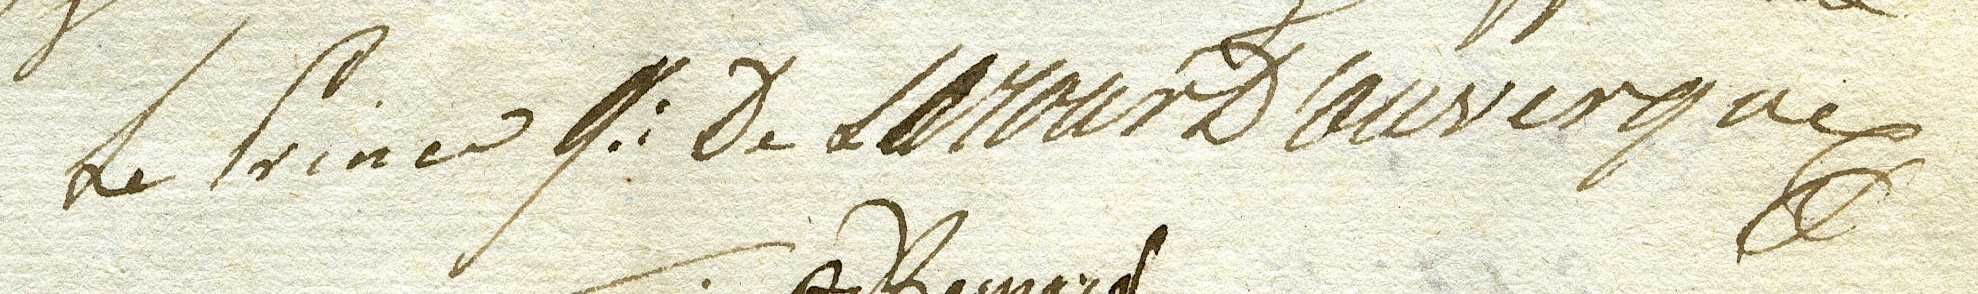 Le Prince g.: De LaTour D'auvergne
Renard